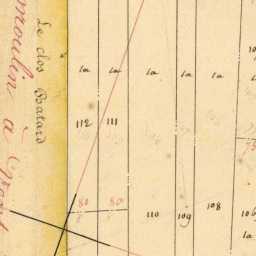 Le clos Batard
moulin à Vent
la la la la la la
112 111
80 80
110 109 108 106
la